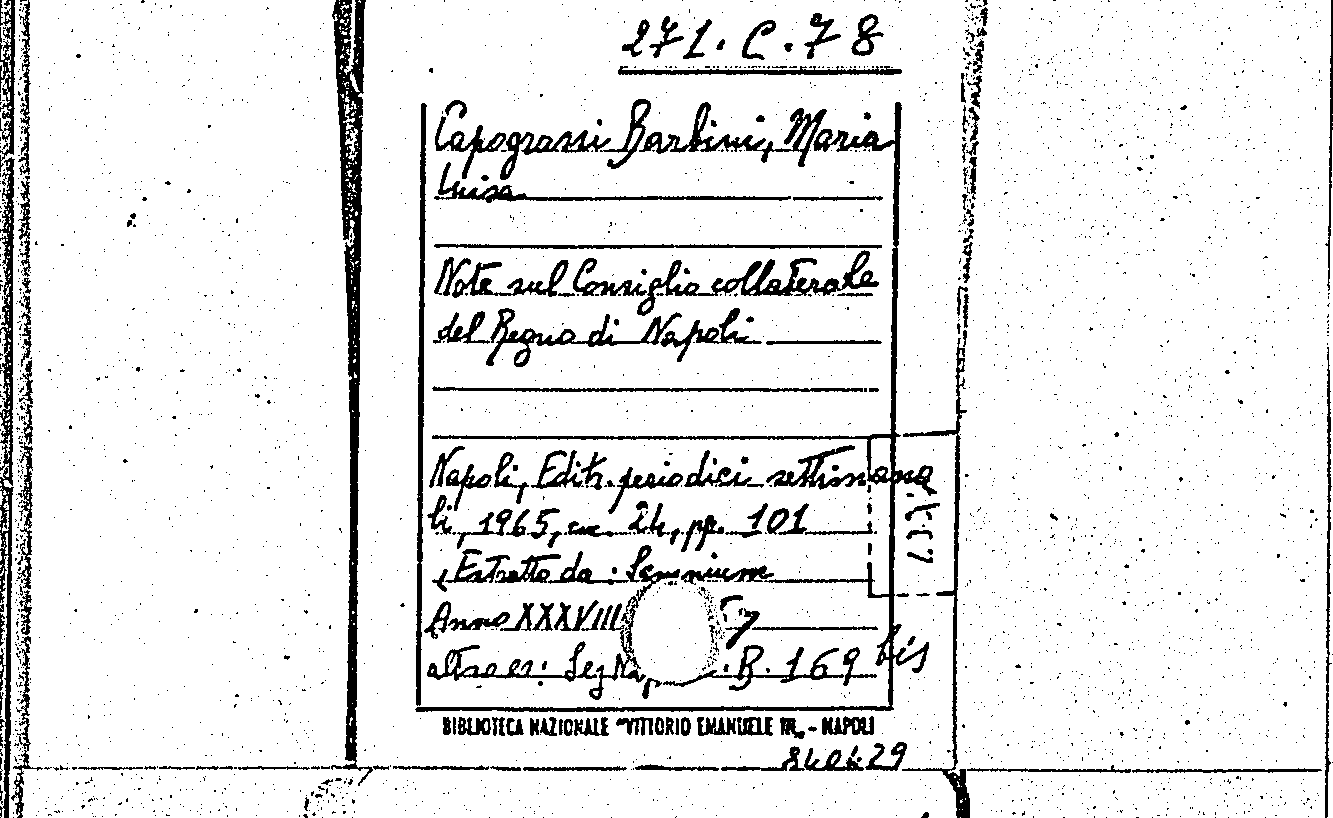 271.C.78
Capograssi Barbini, Maria
Luisa
Note sul Consiglio collaterale
del Regno di Napoli
Napoli, Editr. periodici settimana
li, 1965, cm. 24, pp. 101
(Estratto da: Samnium
Anno XXXVIII
altro es: Sez Nap B. 169 bis
BIBLIOTECA NAZIONALE "VITTORIO EMANUELE III„ - NAPOLI
840429